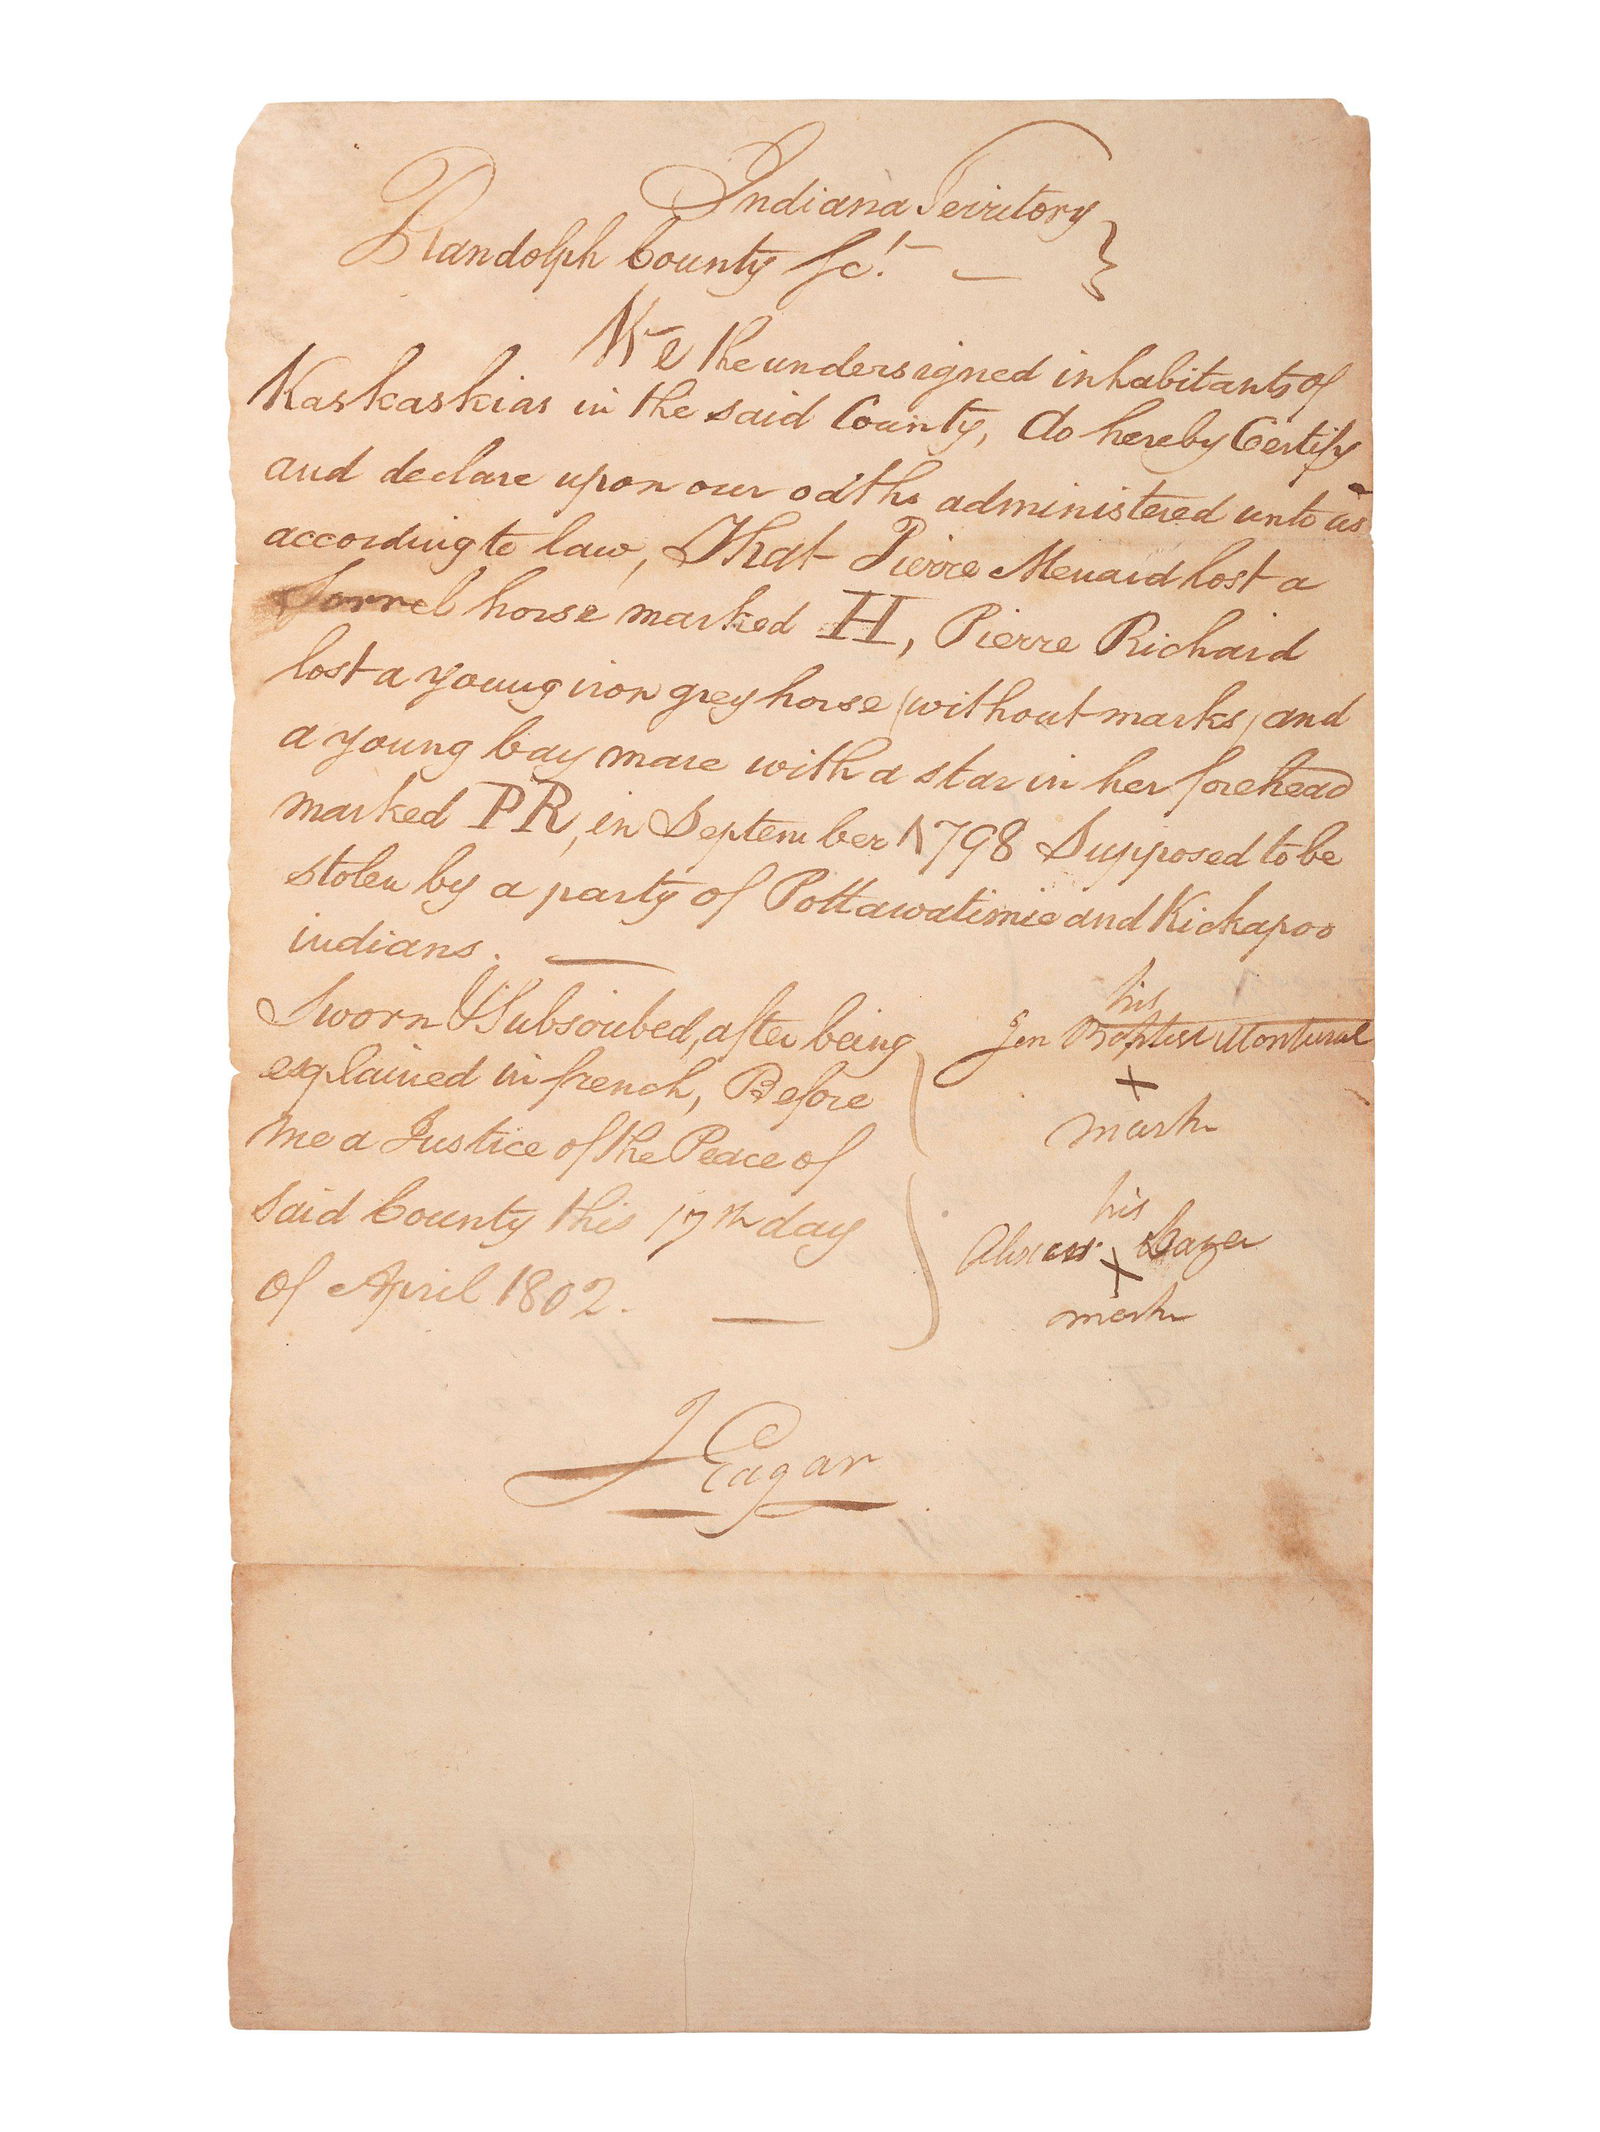 Indiana Territory
Randolph County Sct. —
We the undersigned inhabitants of
Kaskaskias in the said County, do hereby Certify
and declare upon our oaths administered unto us
according to law, That Pierre Menard lost a
Sorrel horse marked H, Pierre Richard
lost a young iron grey horse (without marks) and
a young bay mare with a star in her forehead
marked PR, in September 1798 Supposed to be
stolen by a party of Pottawatimie and Kickapoo
indians. —
Sworn & Subscribed, after being
explained in french, Before
me a Justice of the Peace of
said County this 17th day
of April 1802. —
his
Jen Baptist
X
mark
his
X
mark
J Edgar